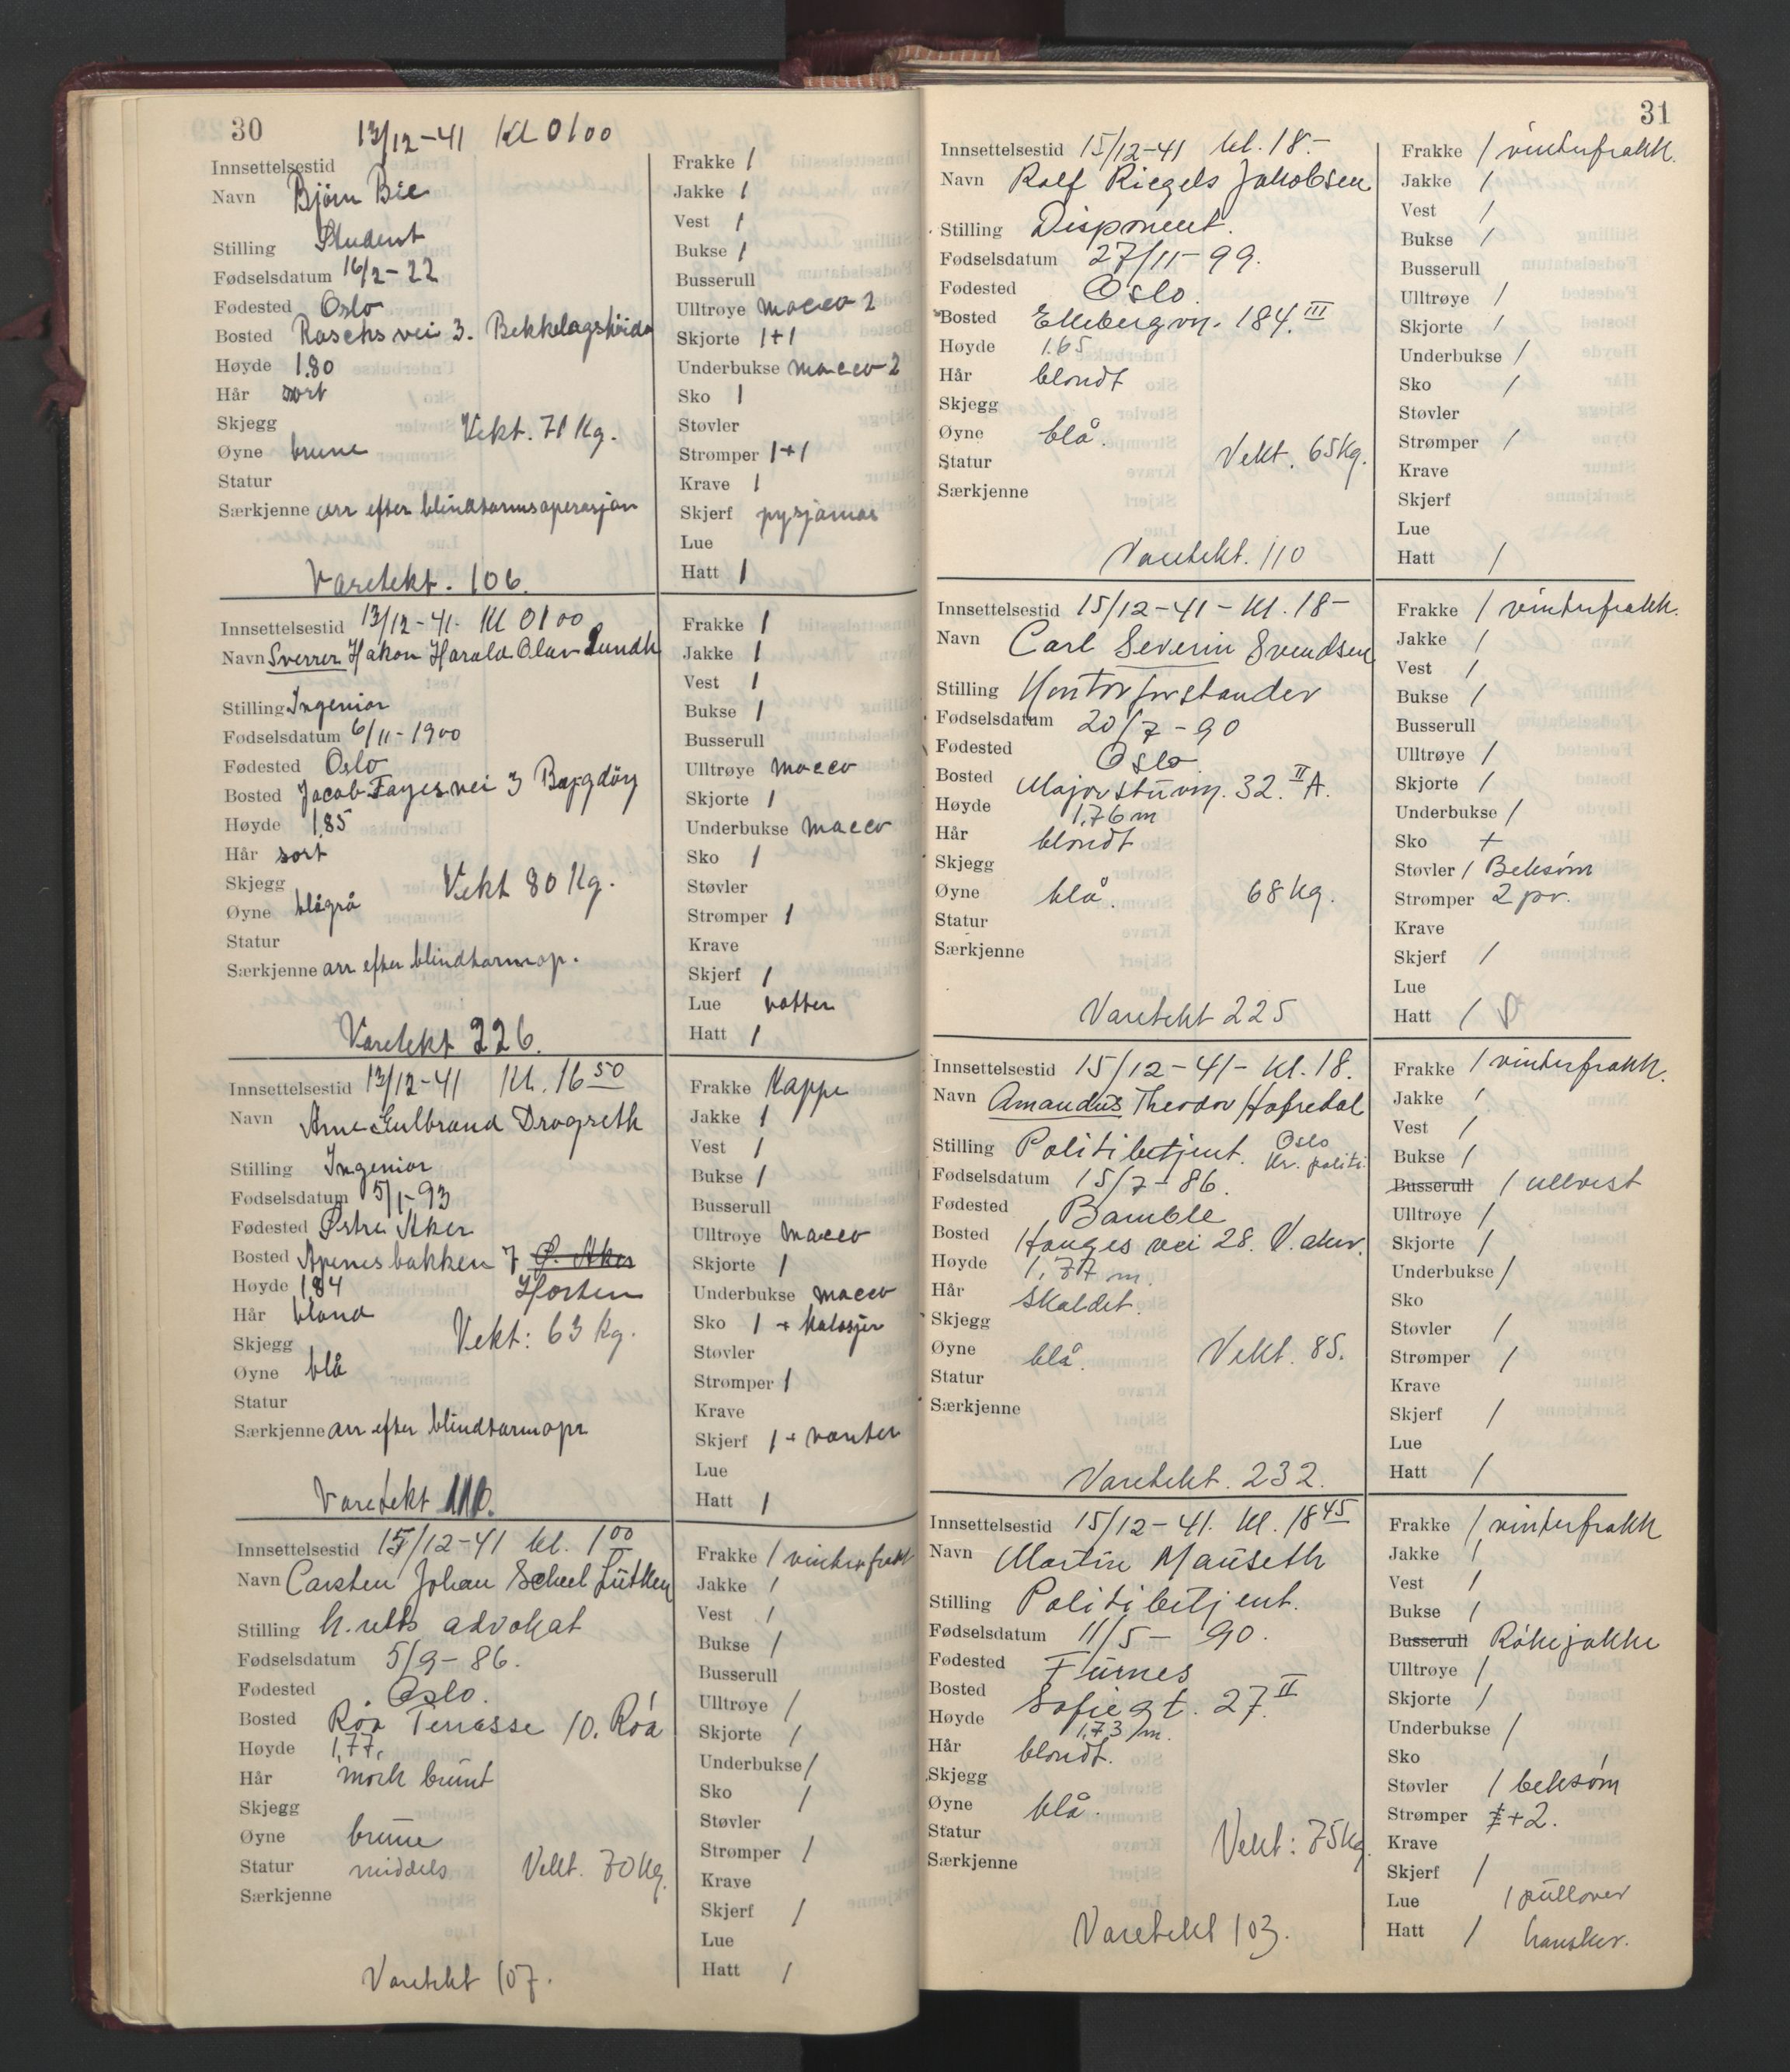 30
13/12-41 Kl 0100
Innsettelsestid
Navn Bjørn Bie
Stilling Student
Fødselsdatum 16/2-22
Fødested Oslo
Bosted Raschs vei 3. Bekkelagshøida
Høyde 1.80
Hår sort
Skjegg
Vekt. 71 Kg.
Øyne brune
Statur
Særkjenne arr efter blindtarmsoperasjon
Varetekt. 106.
Frakke 1
Jakke 1
Vest 1
Bukse 1
Busserull
Ulltrøye macco 2
Skjorte 1+1
Underbukse macco 2
Sko 1
Støvler
Strømper 1+1
Krave 1
Skjerf pysjamas
Lue
Hatt 1
Innsettelsestid 13/12-41. Kl 0100
Navn Sverrer Håkon Harald Olav Lundh
Stilling Ingeniør
Fødselsdatum 6/11-1900
Fødested Oslo
Bosted Jacob Fayes vei 3 Bygdøy
Høyde 1.85
Hår sort
Skjegg
Vekt 80 Kg.
Øyne blågrå
Statur
Særkjenne arr efter blindtarmop.
Varetekt 226.
Frakke 1
Jakke 1
Vest 1
Bukse 1
Busserull
Ulltrøye macco
Skjorte 1
Underbukse macco
Sko 1
Støvler
Strømper 1
Krave
Skjerf 1
Lue votter
Hatt 1
Innsettelsestid 13/12-41 Kl. 16 50
Navn Arne Gulbrand Dragseth
Stilling Ingeniør
Fødselsdatum 5/1-93
Fødested Østre Aker
Bosted Apenesbakken 7 Ø. Aker
Horten
Høyde 1.84
Hår blond
Skjegg
Vekt: 63 kg.
Øyne blå
Statur
Særkjenne arr efter blindtarmopr
Varetekt 110.
Frakke Kappe
Jakke 1
Vest 1
Bukse 1
Busserull
Ulltrøye macco
Skjorte 1
Underbukse macco
Sko 1 + kalosjer
Støvler
Strømper 1
Krave
Skjerf 1 + vanter
Lue
Hatt 1
Innsettelsestid 15/12-41 kl. 1 00
Navn Carsten Johan Scheel Lütken
Stilling h.retts advokat
Fødselsdatum 5/9-86.
Fødested Oslo.
Bosted Røa Terrasse 10. Røa
Høyde 1,77.
Hår mørk brunt
Skjegg
Øyne brune
Statur middels
Vekt. 70 kg.
Særkjenne
Varetekt 107.
Frakke 1 vinterfrakk
Jakke 1
Vest 1
Bukse 1
Busserull
Ulltrøye 1
Skjorte 1
Underbukse 1
Sko 1
Støvler
Strømper 1
Krave
Skjerf 1
Lue
Hatt 1
31
Innsettelsestid 15/12-41 kl. 18.-
Navn Rolf Riegels Jakobsen
Stilling Disponent.
Fødselsdatum 27/11-99.
Fødested Oslo.
Bosted Ellebergvn. 184. III
Høyde 1.65
Hår blondt
Skjegg
Øyne blå.
Statur
Vekt. 65 kg.
Særkjenne
Varetekt. 110
Frakke 1 vinterfrakk.
Jakke 1
Vest 1
Bukse 1
Busserull
Ulltrøye 1
Skjorte 1
Underbukse 1
Sko 1
Støvler
Strømper 1
Krave
Skjerf
Lue
Hatt 1
Innsettelsestid 15/12-41- Kl. 18-
Navn Carl Severin Svendsen
Stilling Kontorforstander
Fødselsdatum 20/7-90
Fødested Oslo
Bosted Majorstuvn. 32. II A.
Høyde 1,76 m
Hår blondt
Skjegg
Øyne blå.
68 kg.
Statur
Særkjenne
Varetekt 225
Frakke 1 vinterfrakk.
Jakke 1
Vest 1
Bukse 1
Busserull
Ulltrøye 1
Skjorte 1
Underbukse 1
Sko +
Støvler 1 Beksøm
Strømper 2 pr.
Krave
Skjerf 1
Lue
Hatt 1
Innsettelsestid 15/12-41- Kl. 18.
Navn Amandus Theodor Hafredal
Stilling Politibetjent. Oslo
kr. politi.
Fødselsdatum 15/7-86.
Fødested Bamble
Bosted Hauges vei 28. V. aker.
Høyde 1,77 m.
Hår skaldet.
Skjegg
Øyne blå.
Vekt. 85.
Statur
Særkjenne
Varetekt. 232.
Frakke 1 vinterfrakk.
Jakke 1
Vest 1
Bukse 1
Busserull 1 ullvest
Ulltrøye 1
Skjorte 1
Underbukse 1
Sko
Støvler 1
Strømper 1
Krave
Skjerf 1
Lue
Hatt 1
Innsettelsestid 15/12-41. Kl. 18 45
Navn Martin Mauseth
Stilling Politibetjent.
Fødselsdatum 11/5-90.
Fødested Furnes
Bosted Sofie gt. 27. II
Høyde 1,73 m.
Hår blondt.
Skjegg
Øyne blå.
Statur
Vekt: 75 kg.
Særkjenne
Varetekt 103.
Frakke 1 vinterfrakk
Jakke 1
Vest 1
Bukse 1
Busserull Råkejakke
Ulltrøye 1
Skjorte 1
Underbukse 1
Sko
Støvler 1 beksøm
Strømper +2.
Krave
Skjerf 1
Lue 1 pullover
Hatt 1 hansker.